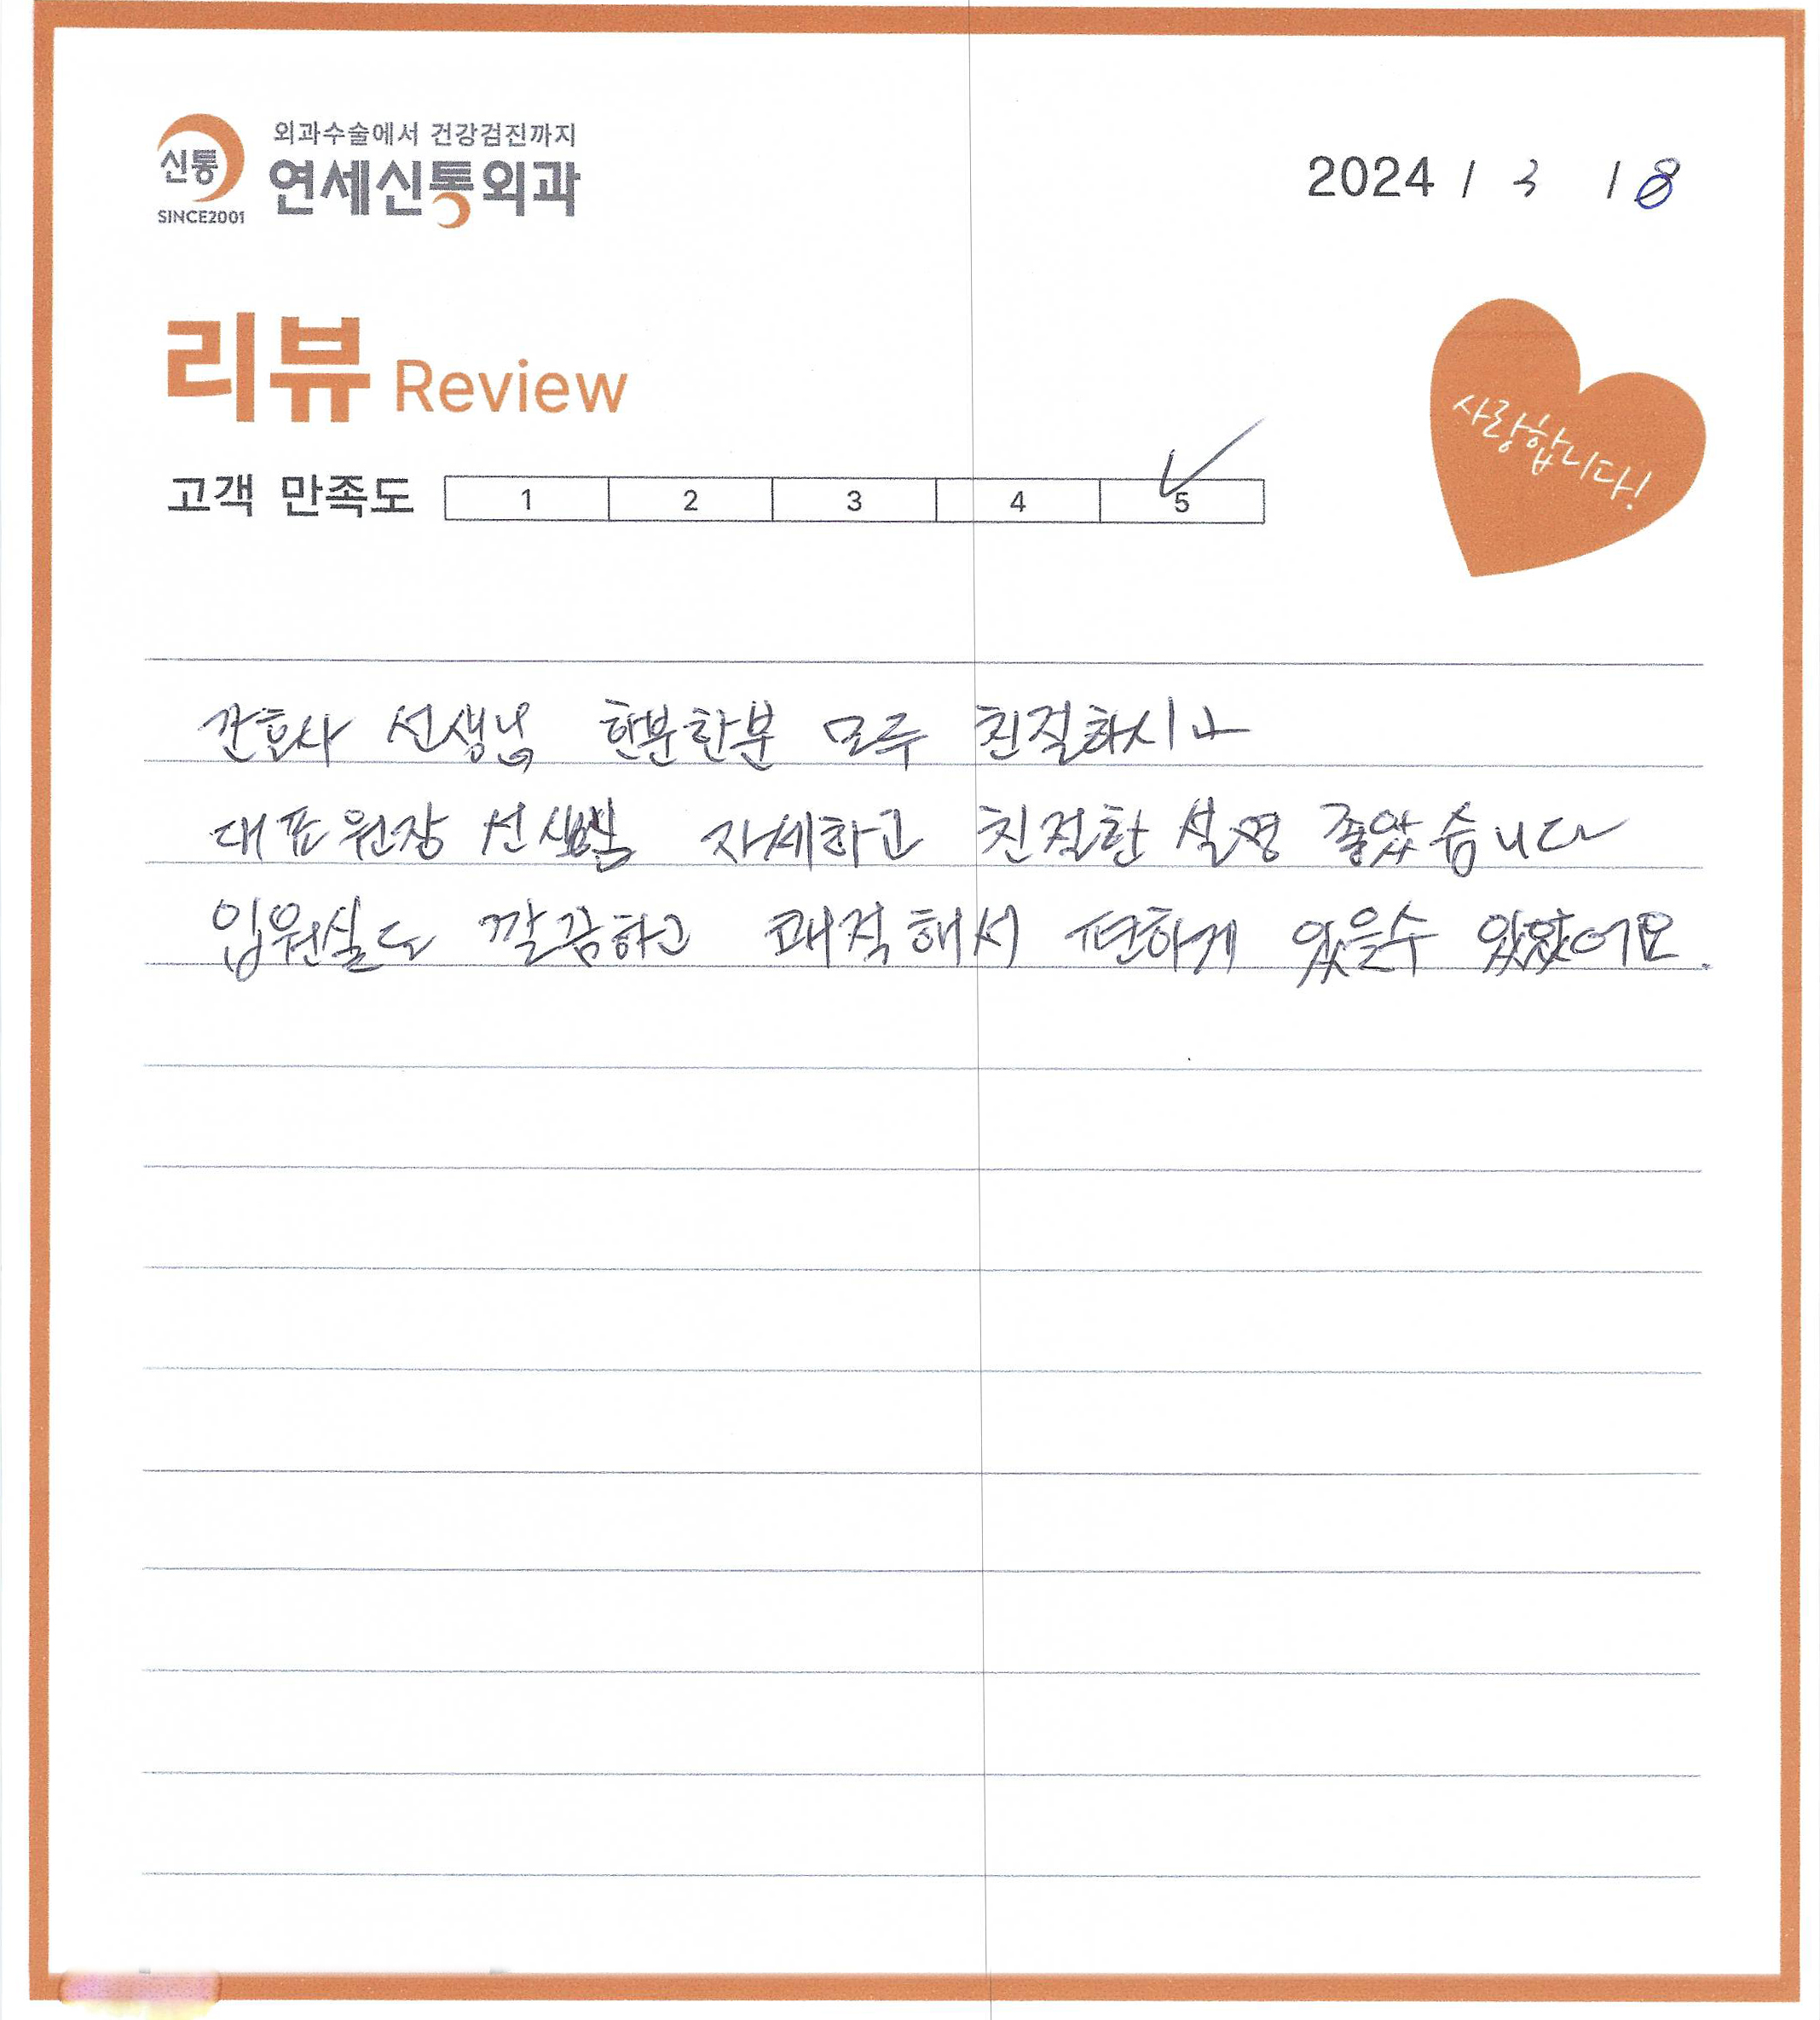 신통
SINCE2001
외과수술에서 건강검진까지
연세신통외과
2024 / 3 18
리뷰 Review
사랑합니다!
고객 만족도 1 2 3 4 5
간호사 선생님 한분한분 모두 친절하시고
대표원장 선생님 자세하고 친절한 설명 좋았습니다
입원실도 깔끔하고 쾌적해서 편하게 있을수 있었어요.